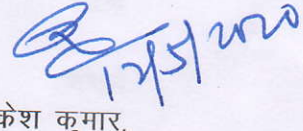 12/5/2020
केश कुमार